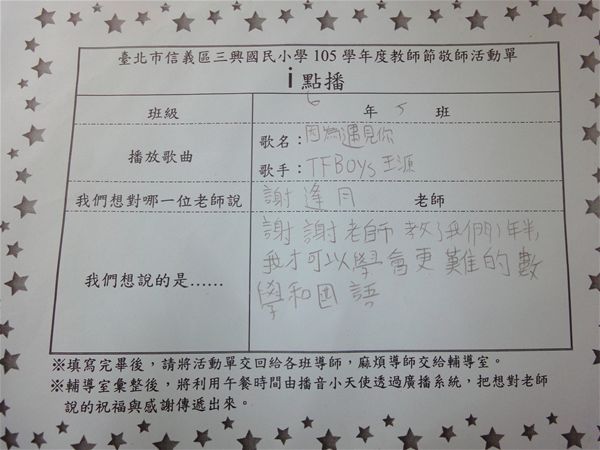 臺北市信義區三興國民小學105學年度教師節敬師活動單
i點播
班級 6年5班
播放歌曲
歌名：因為遇見你
歌手：TFBOYS 王源
我們想對哪一位老師說 謝逢月 老師
我們想說的是……
謝謝老師教了我們1年半,
我才可以學會更難的數
學和国語
※填寫完畢後，請將活動單交回給各班導師，麻煩導師交給輔導室。
※輔導室彙整後，將利用午餐時間由播音小天使透過廣播系統，把想對老師
說的祝福與感謝傳遞出來。